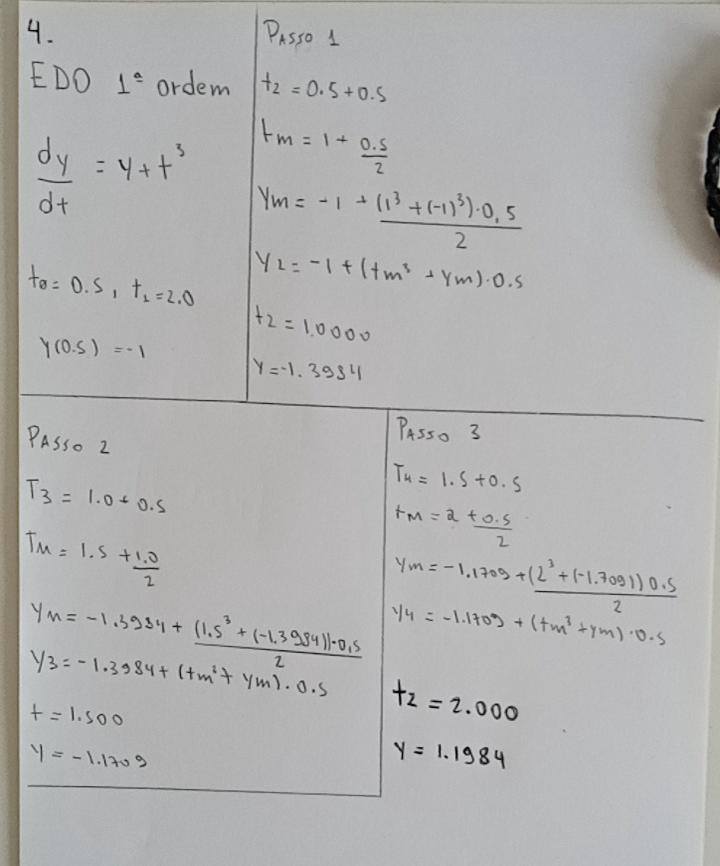 4.
EDO 1ª ordem
dy/dt = y + t³
t₀ = 0.5, t₁ = 2.0
y(0.5) = -1
PASSO 1
t2 = 0.5 + 0.5
tm = 1 + 0.5/2
Ym = -1 + (1³ + (-1)³)·0,5/2
Y2 = -1 + (tm³ + Ym)·0.5
t2 = 1.0000
Y = -1.3984
PASSO 2
T3 = 1.0 + 0.5
TM = 1.5 + 1.0/2
YM = -1.3984 + (1.5³ + (-1.3984))·0,5/2
Y3 = -1.3984 + (tm³ + ym)·0.5
t = 1.500
Y = -1.1709
PASSO 3
T4 = 1.5 + 0.5
tM = 2 + 0.5/2
Ym = -1.1709 + (2³ + (-1.7091))0.5/2
Y4 = -1.1709 + (tm³ + ym)·0.5
t2 = 2.000
Y = 1.1984